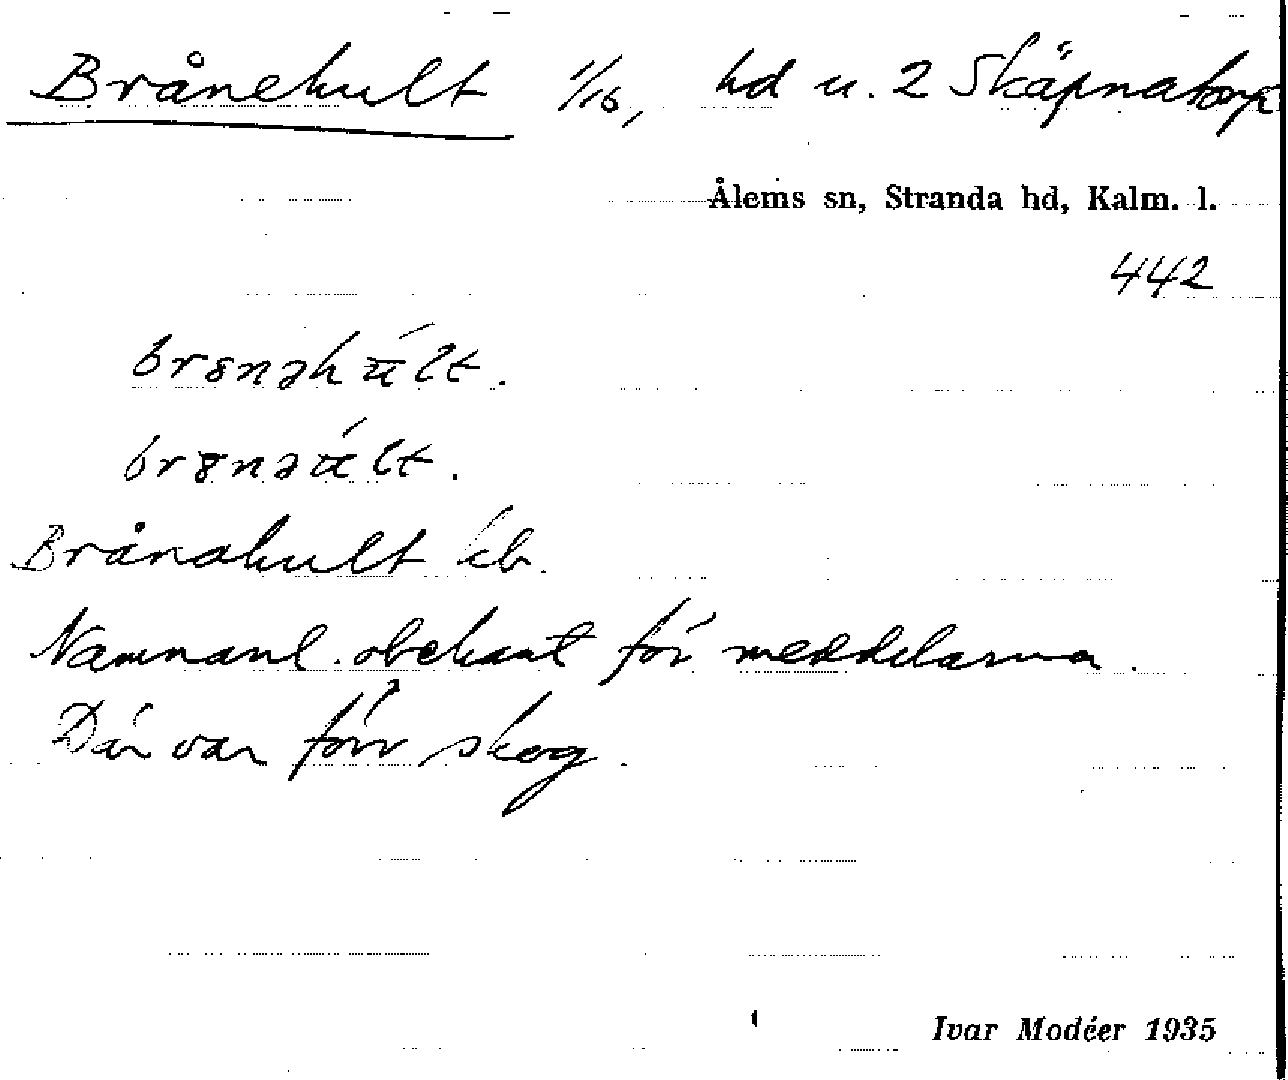 Brånekult 1/16, hd u. 2 Skäpnatorp
Ålems sn, Stranda hd, Kalm. l.
442
brånekult
Namnanl. obekant för meddelarna.
Där var förr skog.
Ivar Modéer 1935